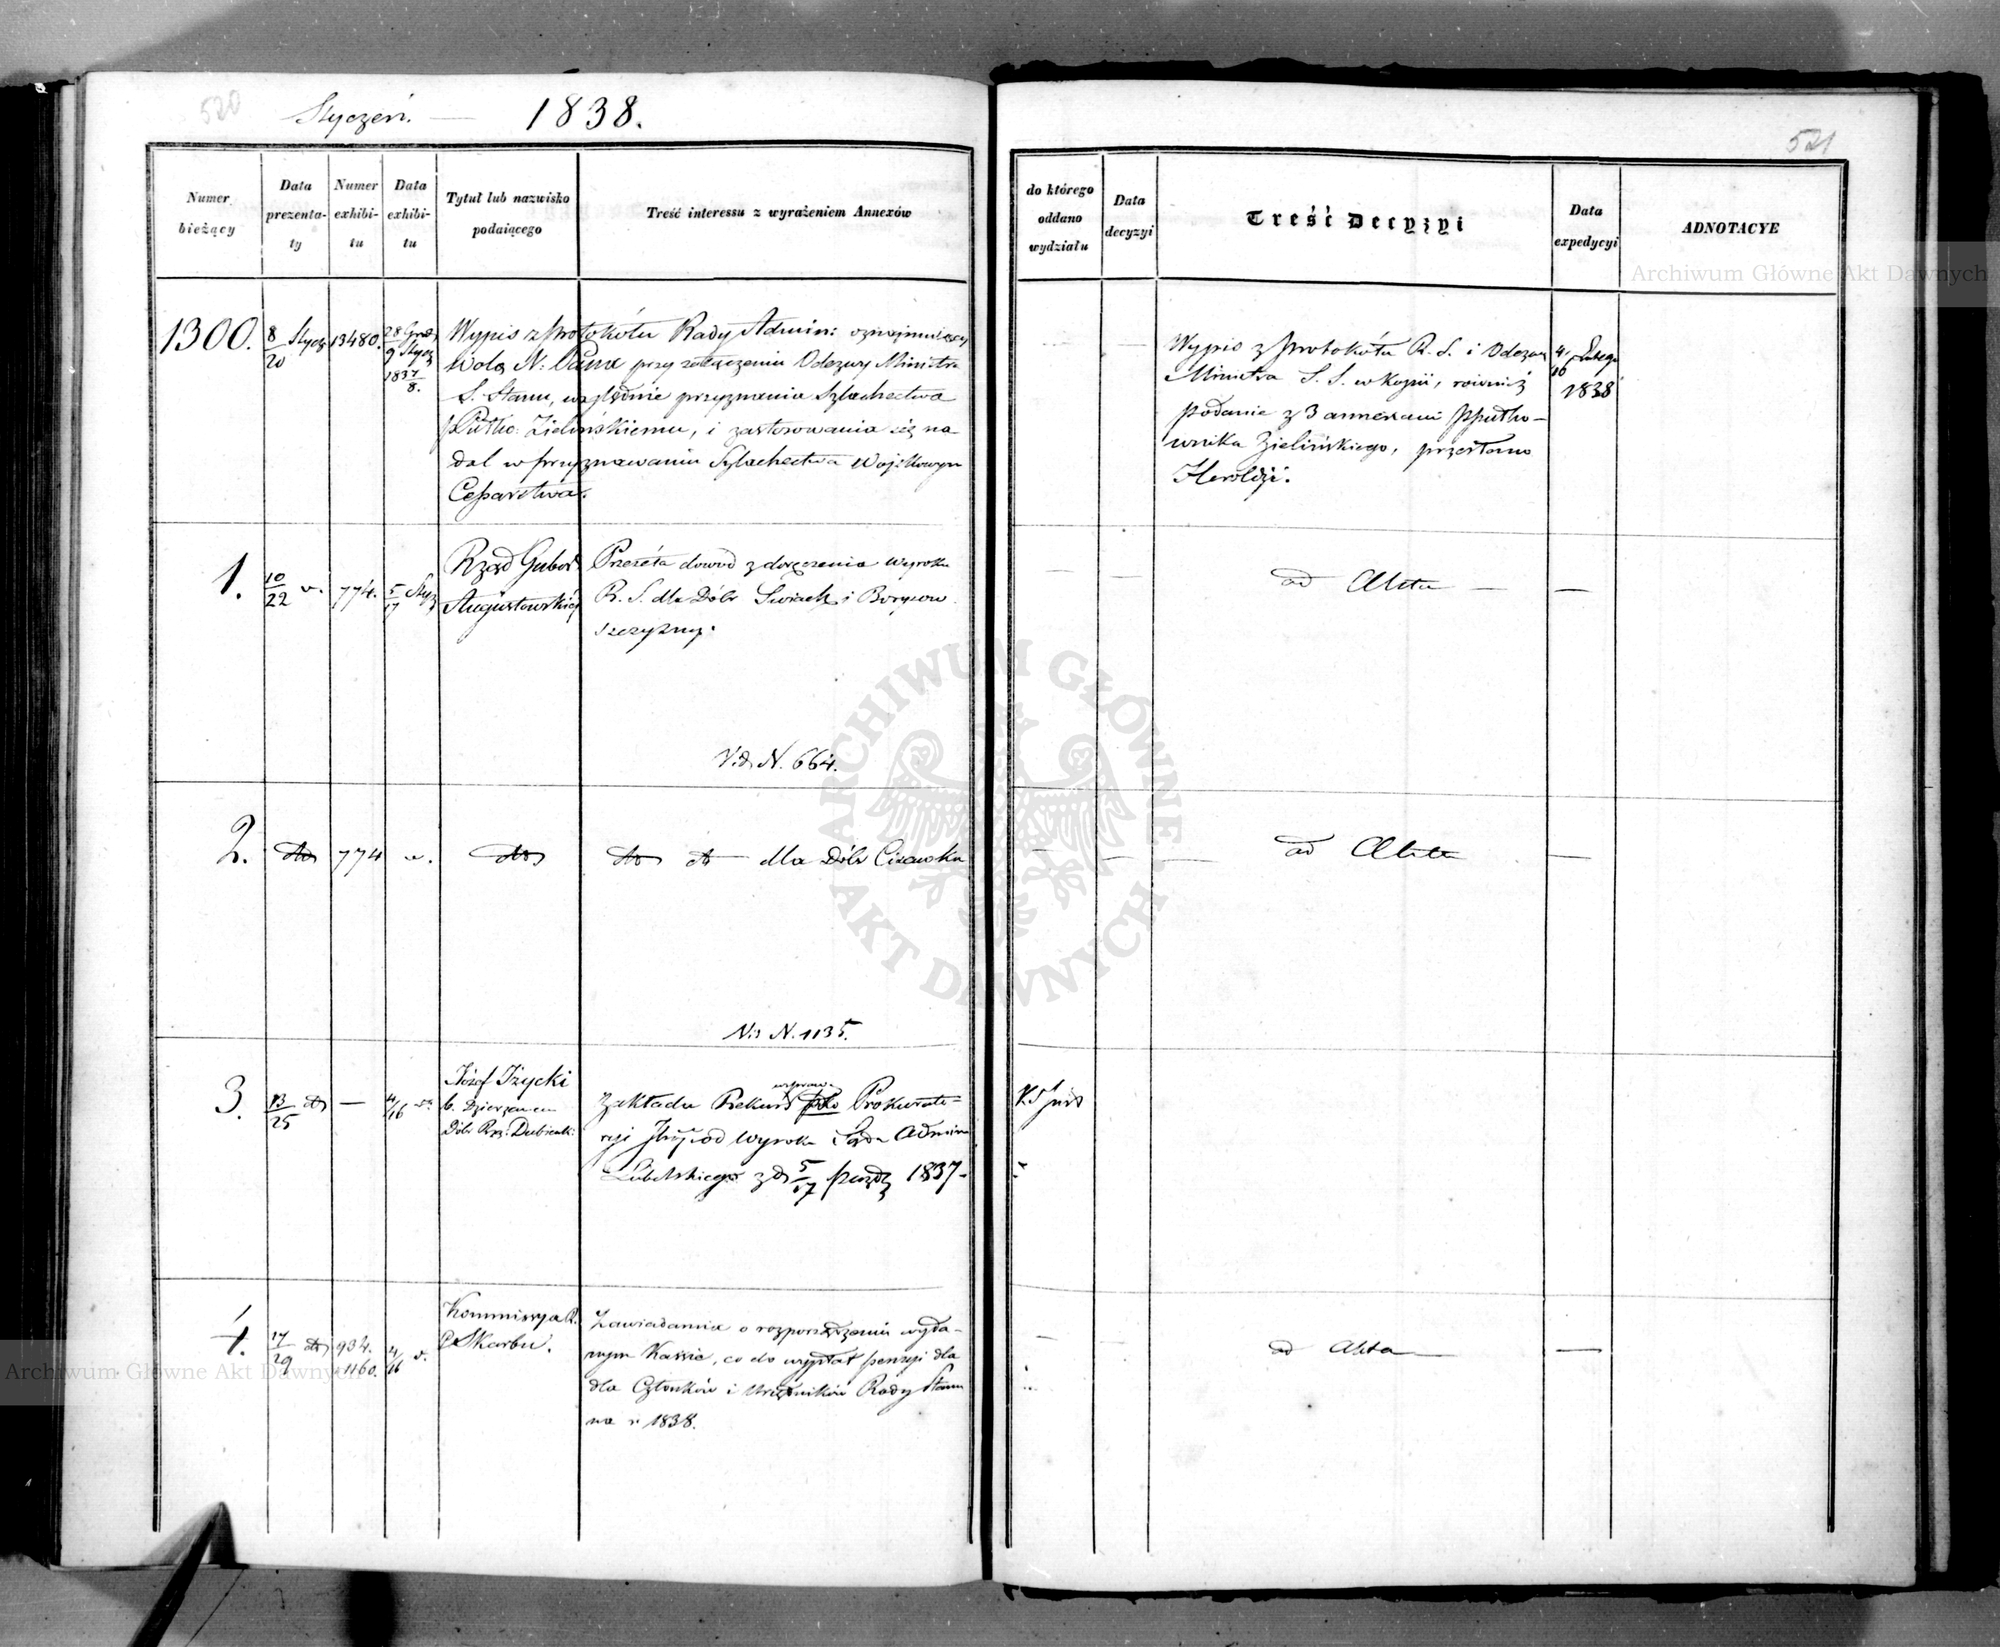 520
Styczeń. — 1838.
Numer
bieżący
Data
prezenta-
ty
Numer
exhibi-
tu
Data
exhibi-
tu
Tytuł lub nazwisko
podającego
Treść interessu z wyrażeniem Annexów
1300.
8/20 Stycz
13480.
28 Grud
9 Stycz
1837/8.
Wypis z Protokółu Rady Admin: oznajmujący
Wolą N: Pana przy załączeniu Odezwy Ministra
S. Stanu, względnie przyznania Szlachectwa
Pułko. Zielińskiemu, i zastosowania się na-
dal w przyznawaniu Szlachectwa Wojskowym
Cesarstwa.
1.
10/22 v.
774.
5/17 Stycz
Rząd Guber
Augustowski
Przesła dowód z doręczenia Wyroku
R. S. dla Dóbr Świack i Borysow
szczyzny.
Vid N. 664.
2.
dto
774
v.
dto
dto dt — dla Dóbr Cisowka
Vid N. 1135.
3.
13/25 dto
—
4/16
Józef Iżycki
b. Dzierżawca
Dóbr Rzą: Dubienk:
w sprawie
Zakłada Rekurs Prokurato-
ryi od Wyroku Sądu Admin
Lubelskiego z d 5/17 Paźdz 1837 -
4.
17/29 dto
934.
1160.
4/16 v.
Kommissya R.
P. Skarbu.
Zawiadamia o rozporządzeniu wyda-
nym Kassie, co do wypłat pensyi dla
dla Członków i Urzędników Rady Stanu
na r. 1838.
521
do którego
oddano
wydziału
Data
decyzyi
Treść Decyzyi
Data
expedycyi
ADNOTACYE
Wypis z Protokółu R. S. i Odezwę
Ministra S. S. w Kopii, również
podanie z 3 annexami Ppułko-
wnika Zielińskiego, przesłano
Heroldyi.
4/16 Lutego
1838
— — ad Akta — —
— — ad Akta —
— — ad Akta — —
Archiwum Główne Akt Dawnych
ARCHIWUM GŁÓWNE AKT DAWNYCH
Archiwum Główne Akt Dawnych